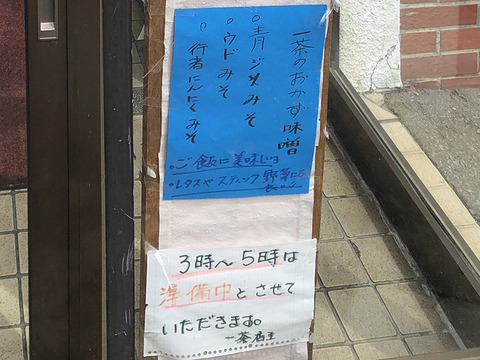 一茶のおかず味噌
○青ジソみそ
○ウドみそ
○行者にんにくみそ
○ご飯に美味しい
○レタスやスティック野菜にも
3時〜5時は
準備中とさせて
いただきます。
一茶店主